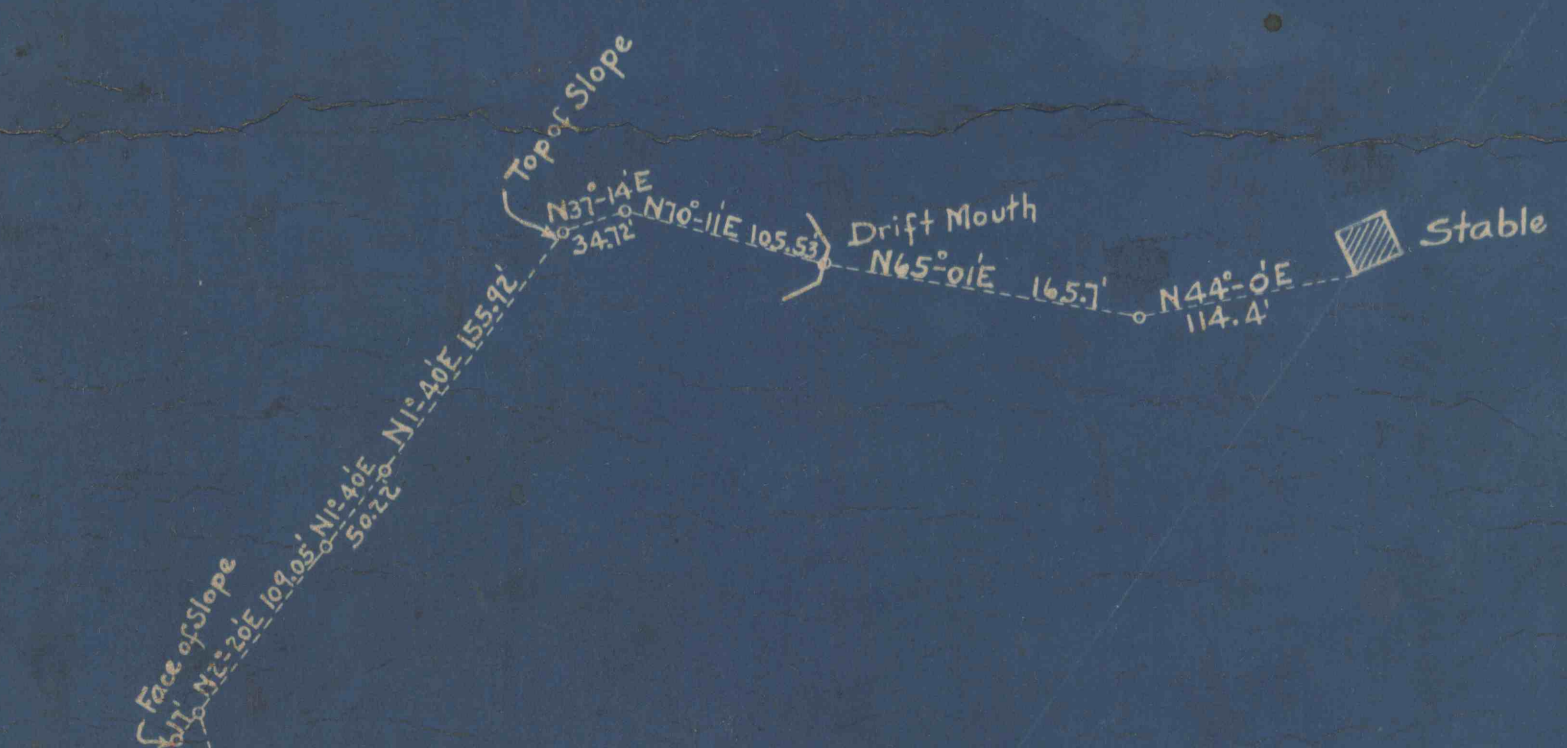 Top of Slope
N37°-14'E
34.72'
N70°-11'E 105.53'
Drift Mouth
N65°-01'E 165.7'
N44°-0'E
114.4'
Stable
N1°-40'E 155.92'
N1°-40'E
50.22'
N2°-20'E 109.05'
Face of Slope